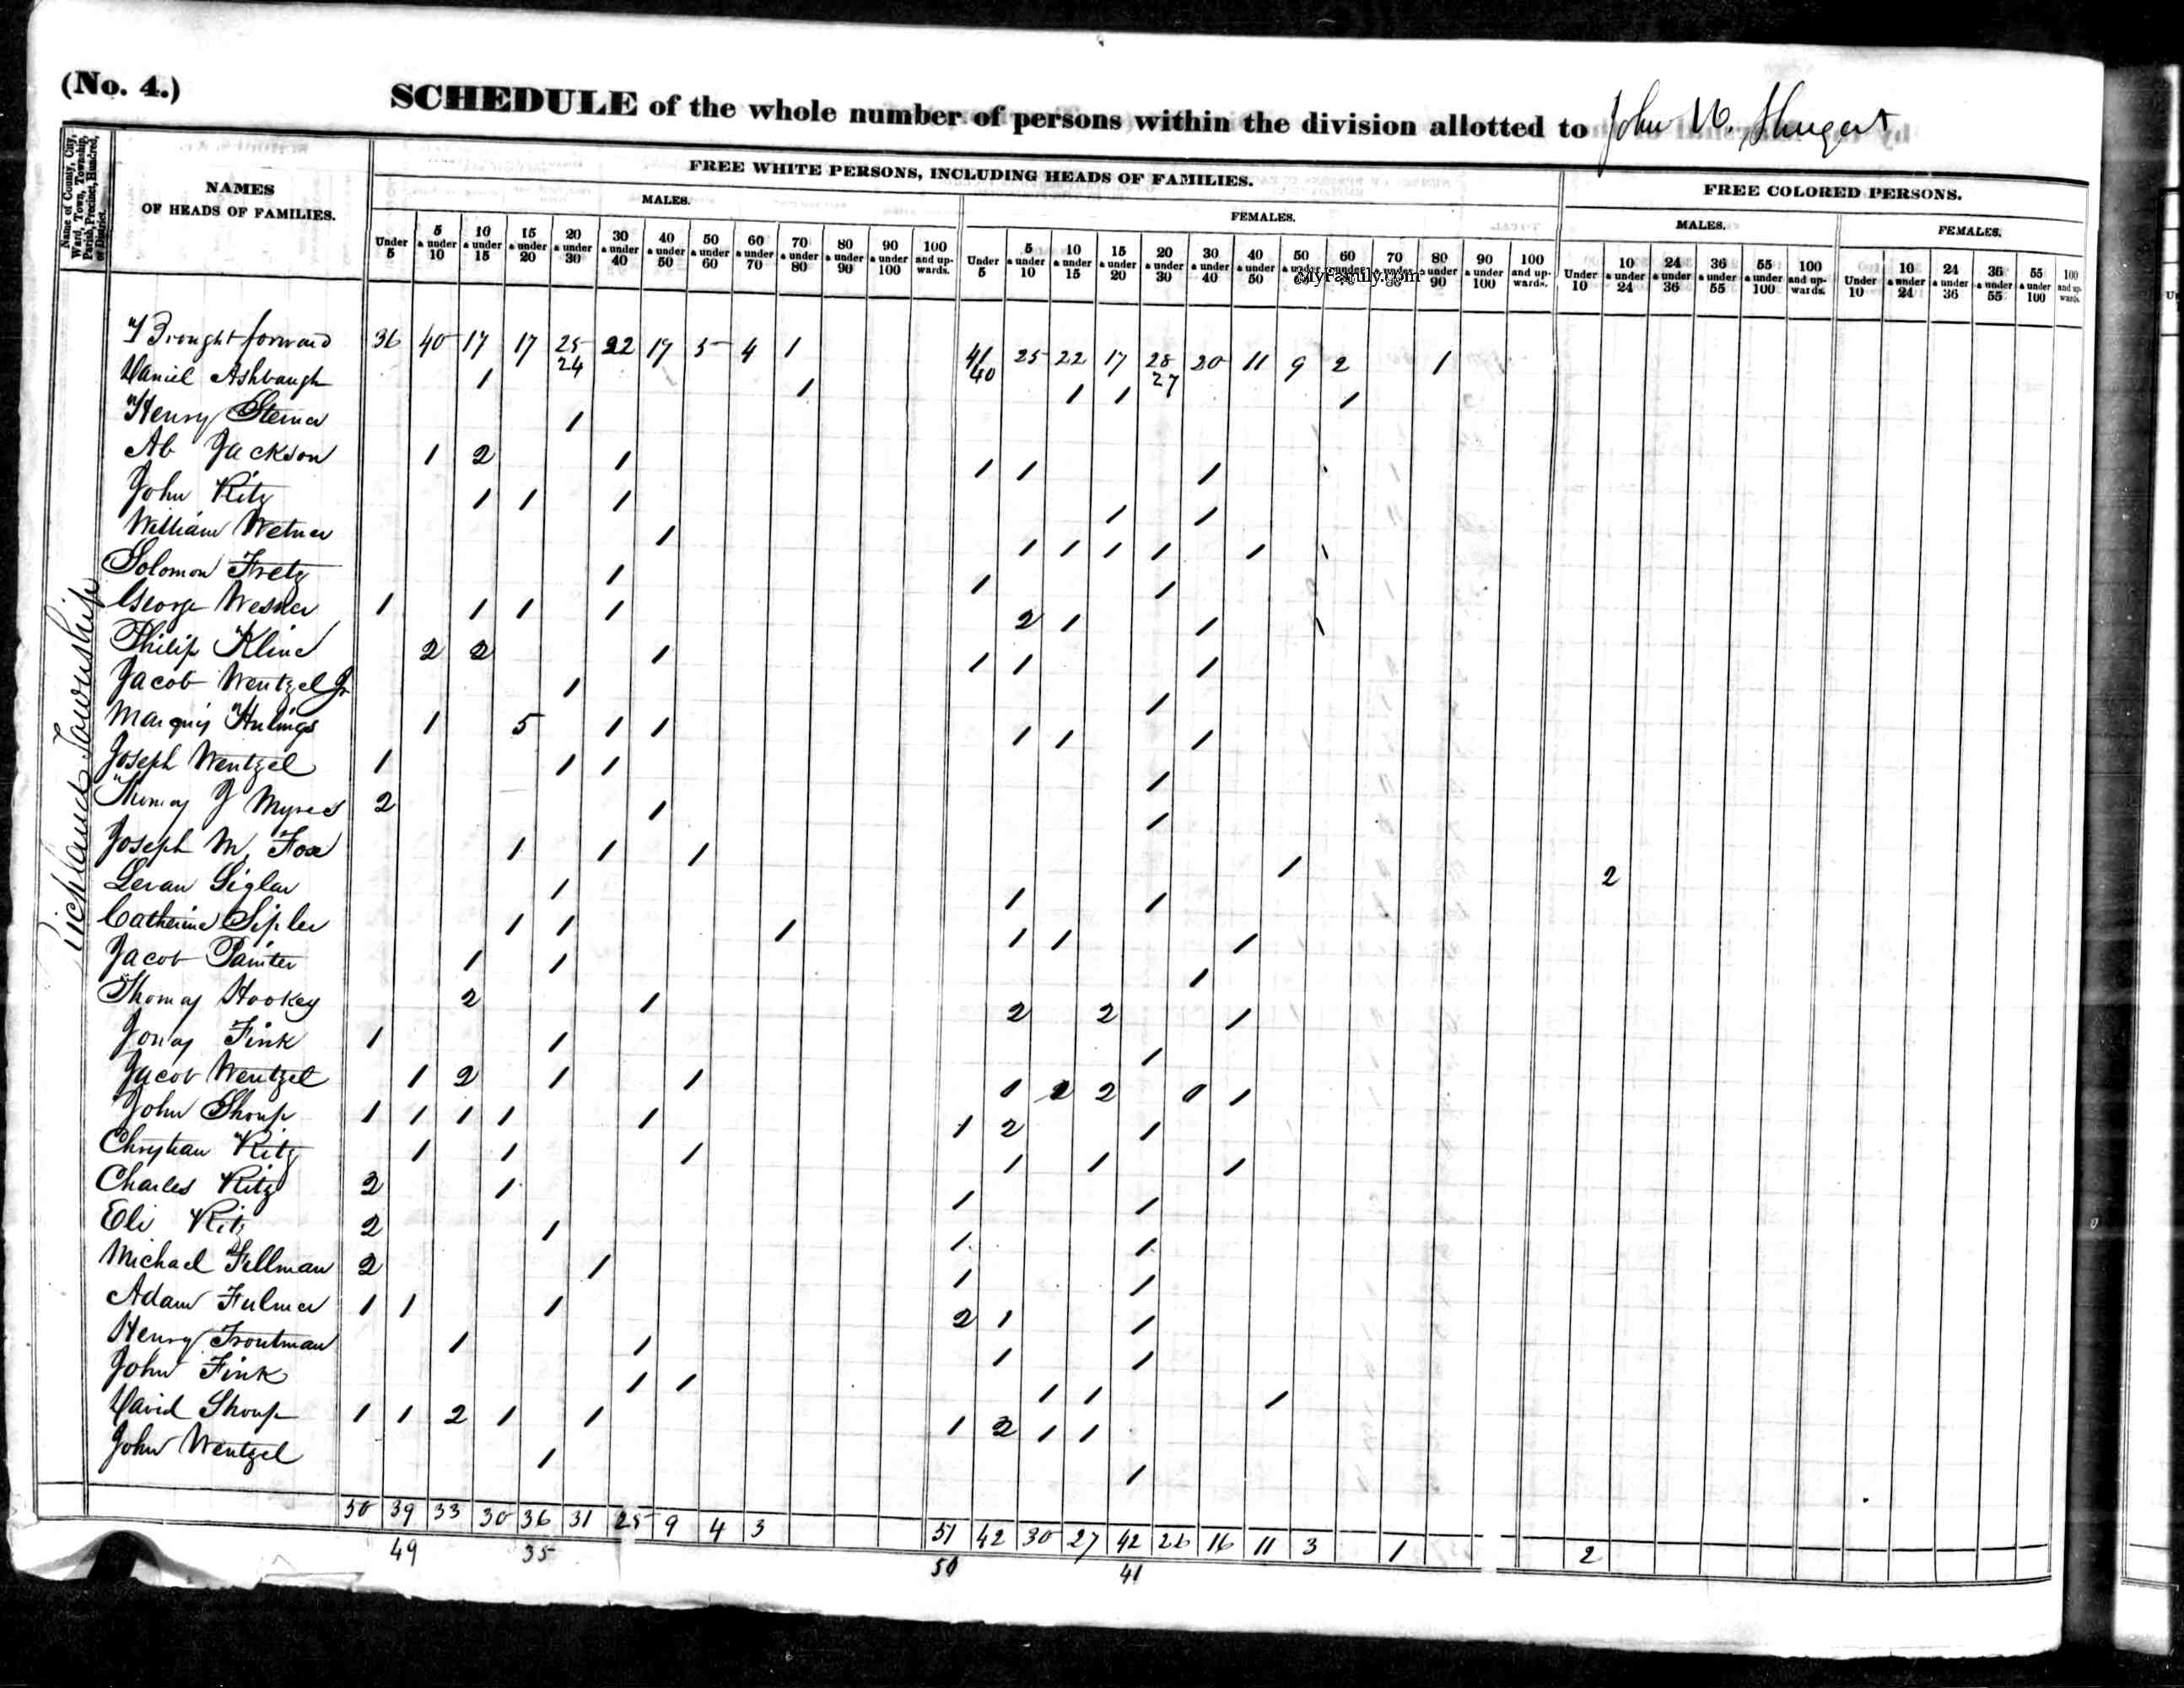 (No. 4.)
SCHEDULE of the whole number of persons within the division allotted to John W. Shugart
Name of County, City, Ward, Town, Township, Parish, Precinct, Hundred, or District.
NAMES OF HEADS OF FAMILIES.
FREE WHITE PERSONS, INCLUDING HEADS OF FAMILIES.
FREE COLORED PERSONS.
MALES.
FEMALES.
MALES.
FEMALES.
Under 5 | 5 & under 10 | 10 & under 15 | 15 & under 20 | 20 & under 30 | 30 & under 40 | 40 & under 50 | 50 & under 60 | 60 & under 70 | 70 & under 80 | 80 & under 90 | 90 & under 100 | 100 and upwards.
Under 5 | 5 & under 10 | 10 & under 15 | 15 & under 20 | 20 & under 30 | 30 & under 40 | 40 & under 50 | 50 | 60 | 70 | 80 & under 90 | 90 & under 100 | 100 and upwards.
Under 10 | 10 & under 24 | 24 & under 36 | 36 & under 55 | 55 & under 100 | 100 and upwards.
Under 10 | 10 & under 24 | 24 & under 36 | 36 & under 55 | 55 & under 100 | 100 and upwards.
MyFamily.com
Richland Township
Brought forward 36 40 17 17 25 22 19 5 4 1 41 25 22 17 28 20 11 9 2 1
24 40 27
Daniel Ashbaugh 1 1 1 1 1
Henry Steiner 1
Ab Jackson 1 2 1 1 1 1
John Ritz 1 1 1 1 1
William Wetner 1 1 1 1 1 1
Solomon Fretz 1 1 1
George Wesner 1 1 1 1 2 1 1
Philip Kline 2 2 1 1 1 1
Jacob Wentzel Jr 1 1
Marquis Hulings 1 5 1 1 1 1 1
Joseph Wentzel 1 1 1 1
Thomas J Myres 2 1 1
Joseph M. Fox 1 1 1 1 2
Levan Sigler 1 1 1
Catherine Sipler 1 1 1 1 1 1
Jacob Painter 1 1 1
Thomas Hookey 2 1 2 2 1
Jonas Fink 1 1 1
Jacob Wentzel 1 2 1 1 1 2 2 1 1
John Shoup 1 1 1 1 1 1 2 1
Christian Ritz 1 1 1 1 1 1
Charles Ritz 2 1 1 1
Eli Ritz 2 1 1 1
Michael Fellman 2 1 1 1
Adam Fulmer 1 1 1 2 1 1
Henry Troutman 1 1 1 1
John Fink 1 1 1 1 1
David Shoup 1 1 2 1 1 1 2 1 1
John Wentzel 1 1
50 39 33 30 36 31 25 9 4 3 51 42 30 27 42 26 16 11 3 1 2
49 35 50 41